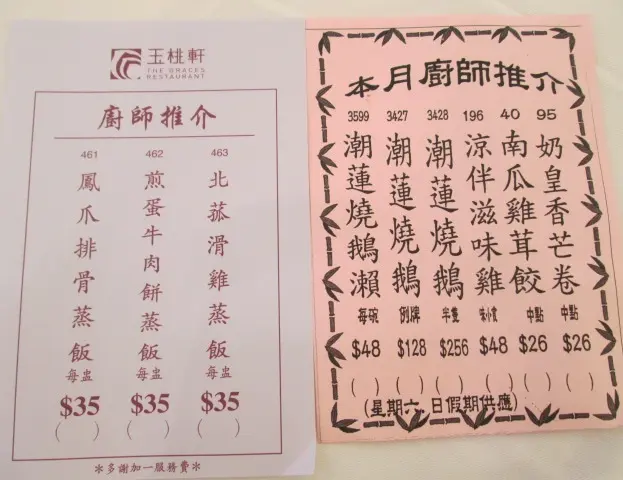 玉桃軒
THE GRACES
RESTAURANT
廚師推介
461
鳳爪排骨蒸飯
每盅
$35
(    )
462
煎蛋牛肉餅蒸飯
每盅
$35
(    )
463
北菰滑雞蒸飯
每盅
$35
(    )
*多謝加一服務費*
本月廚師推介
3599
潮蓮燒鵝瀨
每碗
$48
(    )
3427
潮蓮燒鵝
例牌
$128
(    )
3428
潮蓮燒鵝
半隻
$256
(    )
196
涼伴滋味雞
味小食
$48
(    )
40
南瓜雞茸餃
中點
$26
(    )
95
奶皇香芒卷
中點
$26
(    )
(星期六,日假期供應)